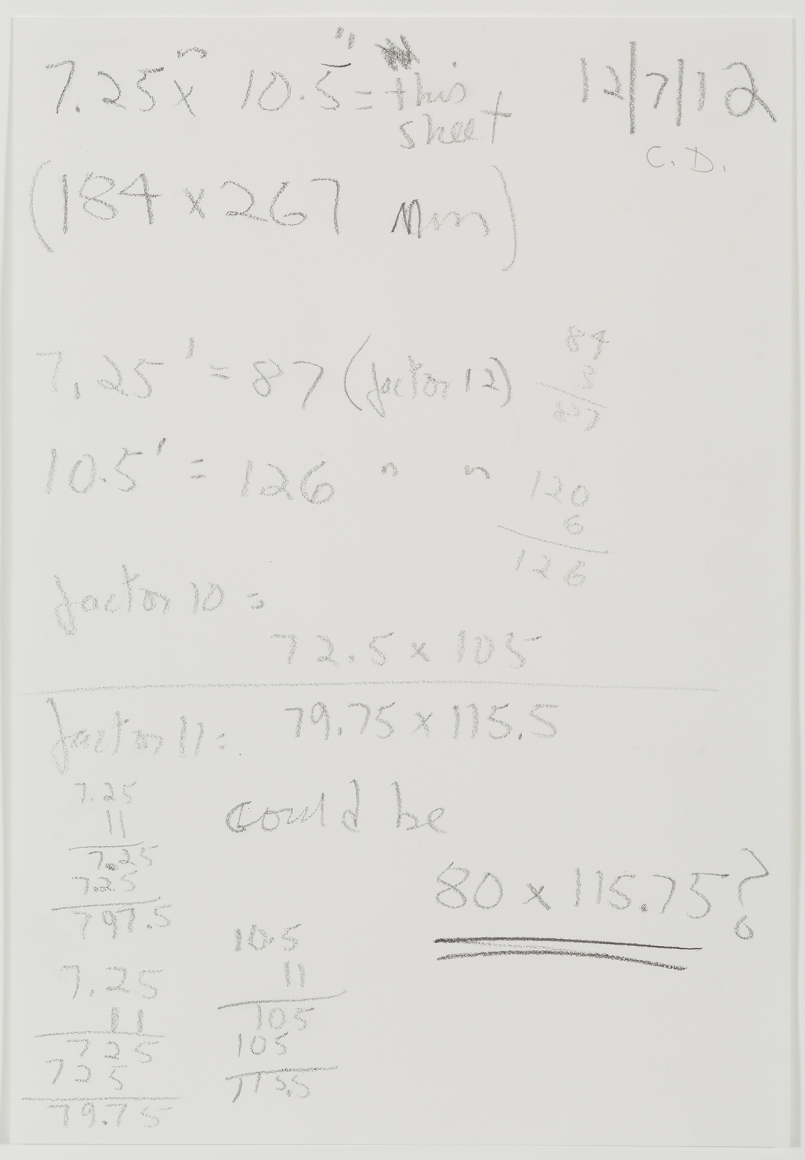 7.25" x 10.5" = this sheet
12/7/12
C.D.
(184 x 267 mm)
7.25' = 87 (factor 12)
84
3
87
10.5' = 126 " "
120
6
126
factor 10 =
72.5 x 105
factor 11: 79.75 x 115.5
could be
80 x 115.75?
7.25
11
7.25
725
797.5
7.25
11
725
725
79.75
10.5
11
105
105
115.5